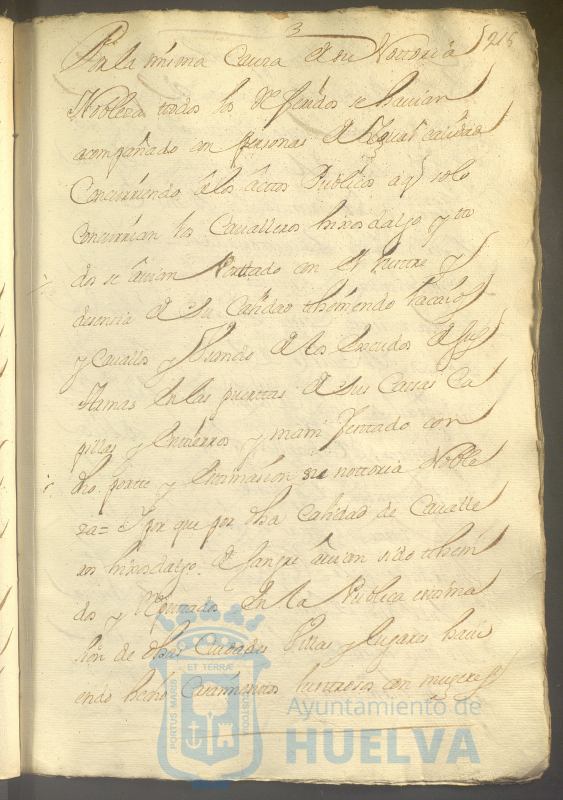 3
215
Por la misma Causa de su Nottoria
Nobleza todos los referidos se hauian
acompañado con personas de igual calidad
Concurriendo a los actos Publicos a q solo
Concurrian los Caualleros hixosdalgo y to
dos se auian Porttado con el Lustre y
desencia de su Calidad theniendo lacaios
y Cauallos y usando de los escudos de sus
Armas en las puerttas de sus Casas Ca
pillas y Entierros y manifestado con
dho. portte y estimasion su nottoria Noble
za= Y por que por dha Calidad de Caualle
ros hixosdalgo de sangre auian sido theni
dos y Reputtados En la Publica estima
sion de dhas Ciudades Villas y lugares hauí
endo hecho Casamientos lustrosos con mugeres
PORTUS MARIS
ET TERRÆ
CUSTODIA
Ayuntamiento de
HUELVA